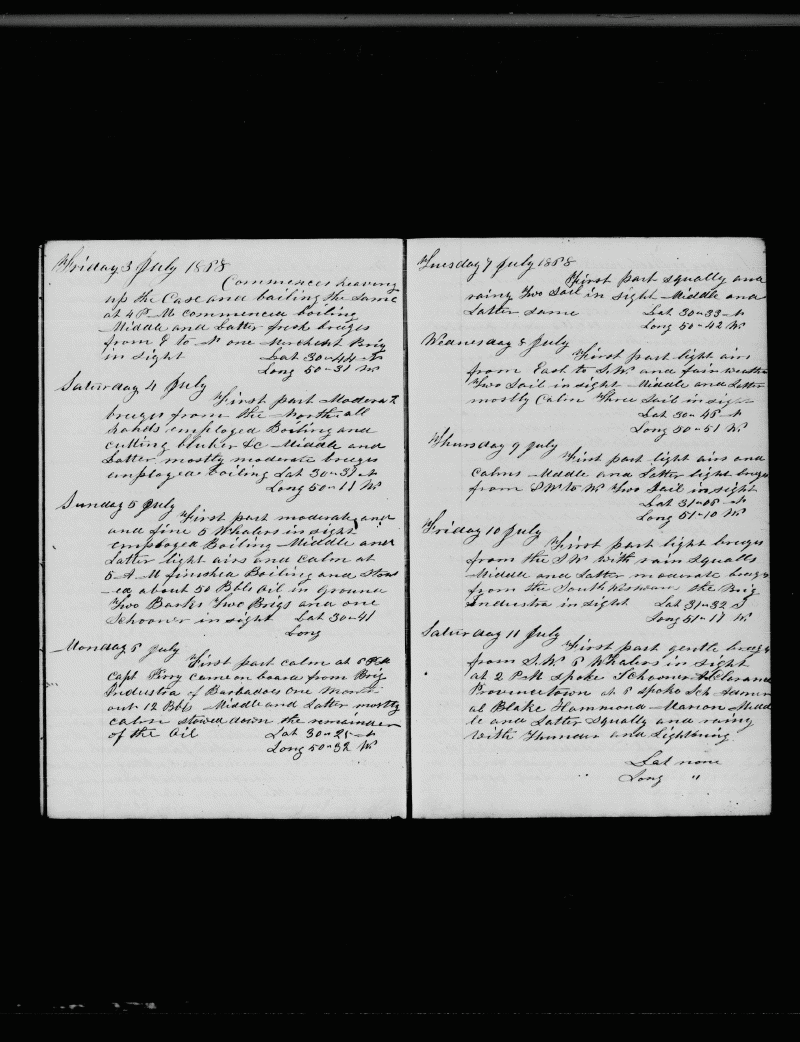 Friday 3 July 1858
Commences heaving
up the Case and bailing the same
at 4 P-M commenced boiling
Middle and Latter fresh breezes
from E to N one Merchant Brig
in sight Lat 30-44 N
Long 50-31 W
Saturday 4 July
First part Moderat
breezes from the North all
hands employed Boiling and
cutting bluber &c Middle and
Latter mostly moderate breezes
employed boiling Lat 30-37 N
Long 50-11 W
Sunday 5 July
First part moderate and
and fine 5 Whalers in sight
employed Boiling Middle and
Latter light airs and calm at
5-A-M finished Boiling and Stow
-ed about 50 Bbls Oil in Ground
Two Barks Two Brigs and one
Schooner in sight Lat 30-41
Long
Monday 6 July
First part calm at 6 P.M
Capt Perry came on board from Brig
Industra of Barbadoes One Month
out 12 Bbls Middle and Latter mostly
calm stowed down the remainder
of the Oil Lat 30-25 N
Long 50-32 W
Tuesday 7 July 1858
First part squally and
rainy Two Sail in sight Middle and
Latter same Lat 30-33 N
Long 50-42 W
Wednesday 8 July
First part light airs
from East to S.W and fair weather
Two Sail in sight Middle and Latter
mostly Calm Three Sail in sight
Lat 30-45 N
Long 50-51 W
Thursday 9 July
First part light airs and
Calms Middle and Latter light breezes
from S W to W Two Sail in sight
Lat 31-05 N
Long 51-10 W
Friday 10 July
First part light breezes
from the S W with rain Squalls
Middle and Latter moderate breezes
from the South Westward the Brig
Industra in sight Lat 31-32
Long 51-17 W
Saturday 11 July
First part gentle breezes
from S.W 6 Whalers in sight
at 2 P.M spoke Schooner
Provincetown at 6 spoke Sch Admir
al Blake Hammond Marion Midd
le and Latter Squally and rainy
with Thunder and Lightning
Lat none
Long "